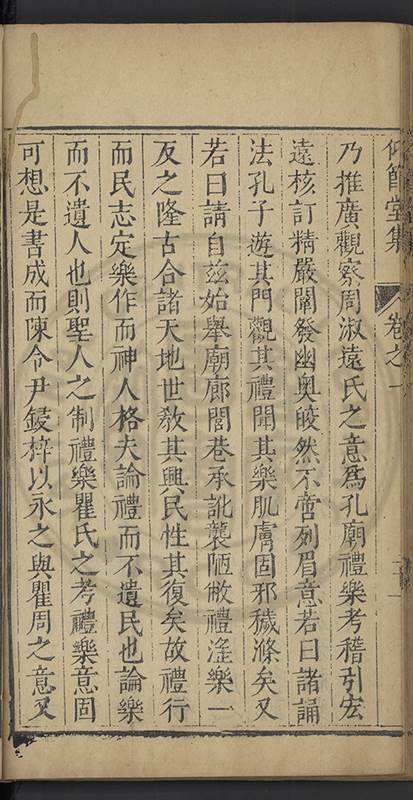 仰節堂集 卷之一
乃推廣觀察周淑遠氏之意爲孔廟禮樂考稽引宏
遠核訂精嚴闡發幽奧皎然不啻列眉意若曰諸誦
法孔子遊其門觀其禮聞其樂肌膚固邪穢滌矣又
若曰請自玆始舉廟廊閭巷承訛襲陋敝禮滛樂一
反之隆古合諸天地世敎其興民性其復矣故禮行
而民志定樂作而神人格夫論禮而不遺民也論樂
而不遺人也則聖人之制禮樂瞿氏之考禮樂意固
可想是書成而陳令尹鋟梓以永之與瞿周之意又